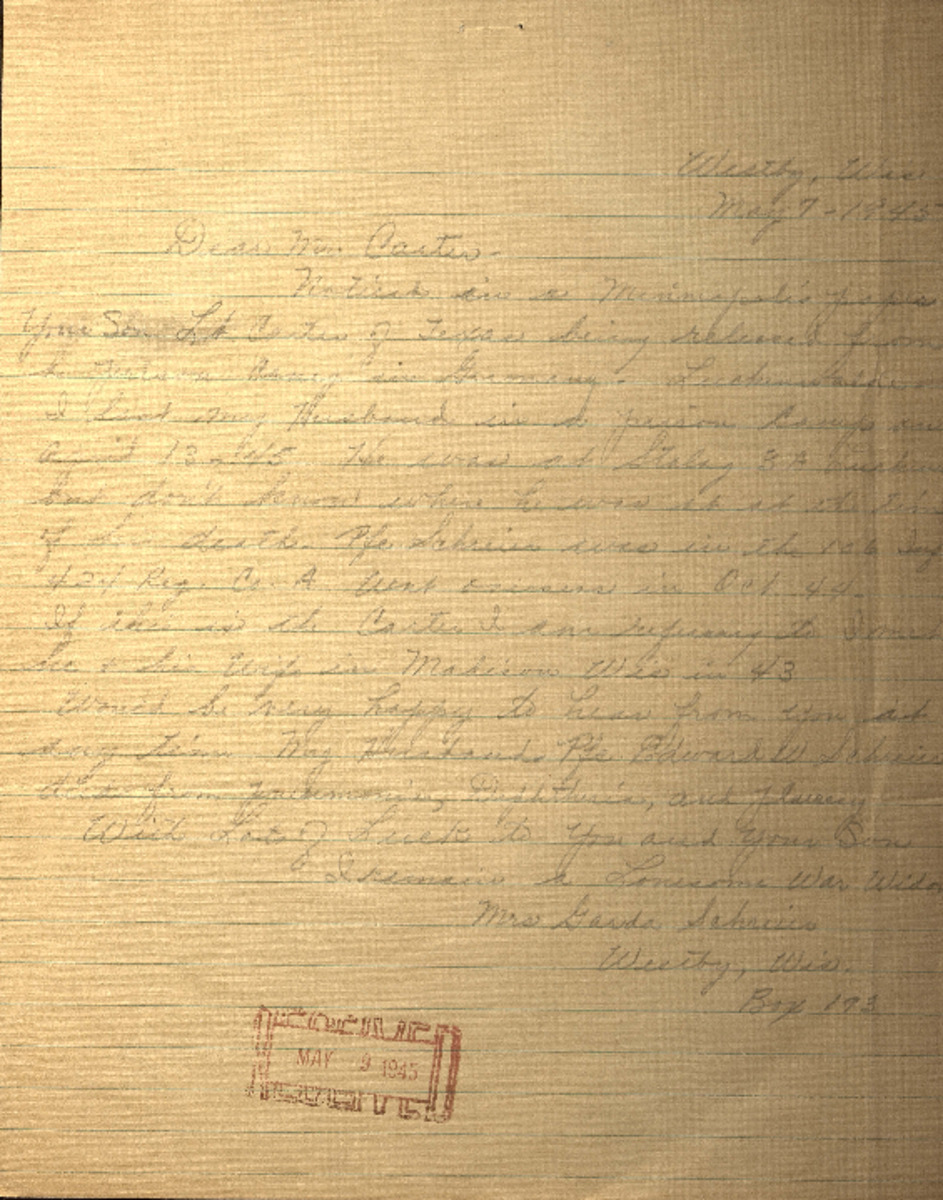 Westby, Wis
May 7-1945
Dear Mr. Carter-
in a Minneapolis paper
Your Son Lt Carter of Texas being released from
a Prison Camp in Germany.
I lost my Husband in a prison Camp on
April 13-45 He was at Stalag 3A
but don't know where he was at at the time
of his death. Pfc Schreier was in the 106 Inf
424 Reg. Co. A Went overseas in Oct 44.
If this is the Carter I am refering to I met
he & his Wife in Madison Wis in 43
Would be very happy to hear from you at
any time. My Husband Pfc Edward W Schreier
died from Diphtheria, and
With Lots of Luck to You and Your Son
I remain a Lonesome War Widow
Mrs Schreier
Westby, Wis.
Box 173
MAY 9 1945